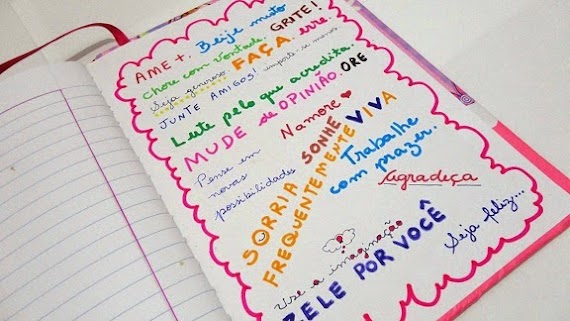 AME+. Beije muito
Chore com vontade. GRITE!
Seja generoso FAÇA. erre.
JUNTE AMIGOS! importe-se menos
Lute pelo que acredita.
MUDE de OPINIÃO. ORE
Namore
Pense em
novas
possibilidades
SORRIA SONHE
FREQUENTEMENTE VIVA
Trabalhe
com prazer.
Agradeça
Use a imaginação
ZELE POR VOCÊ
Seja feliz...